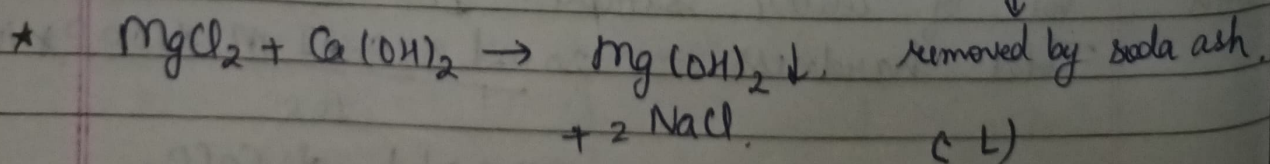 * MgCl₂ + Ca(OH)₂ → Mg(OH)₂ ↓. removed by soda ash.
+ 2 NaCl. (L)